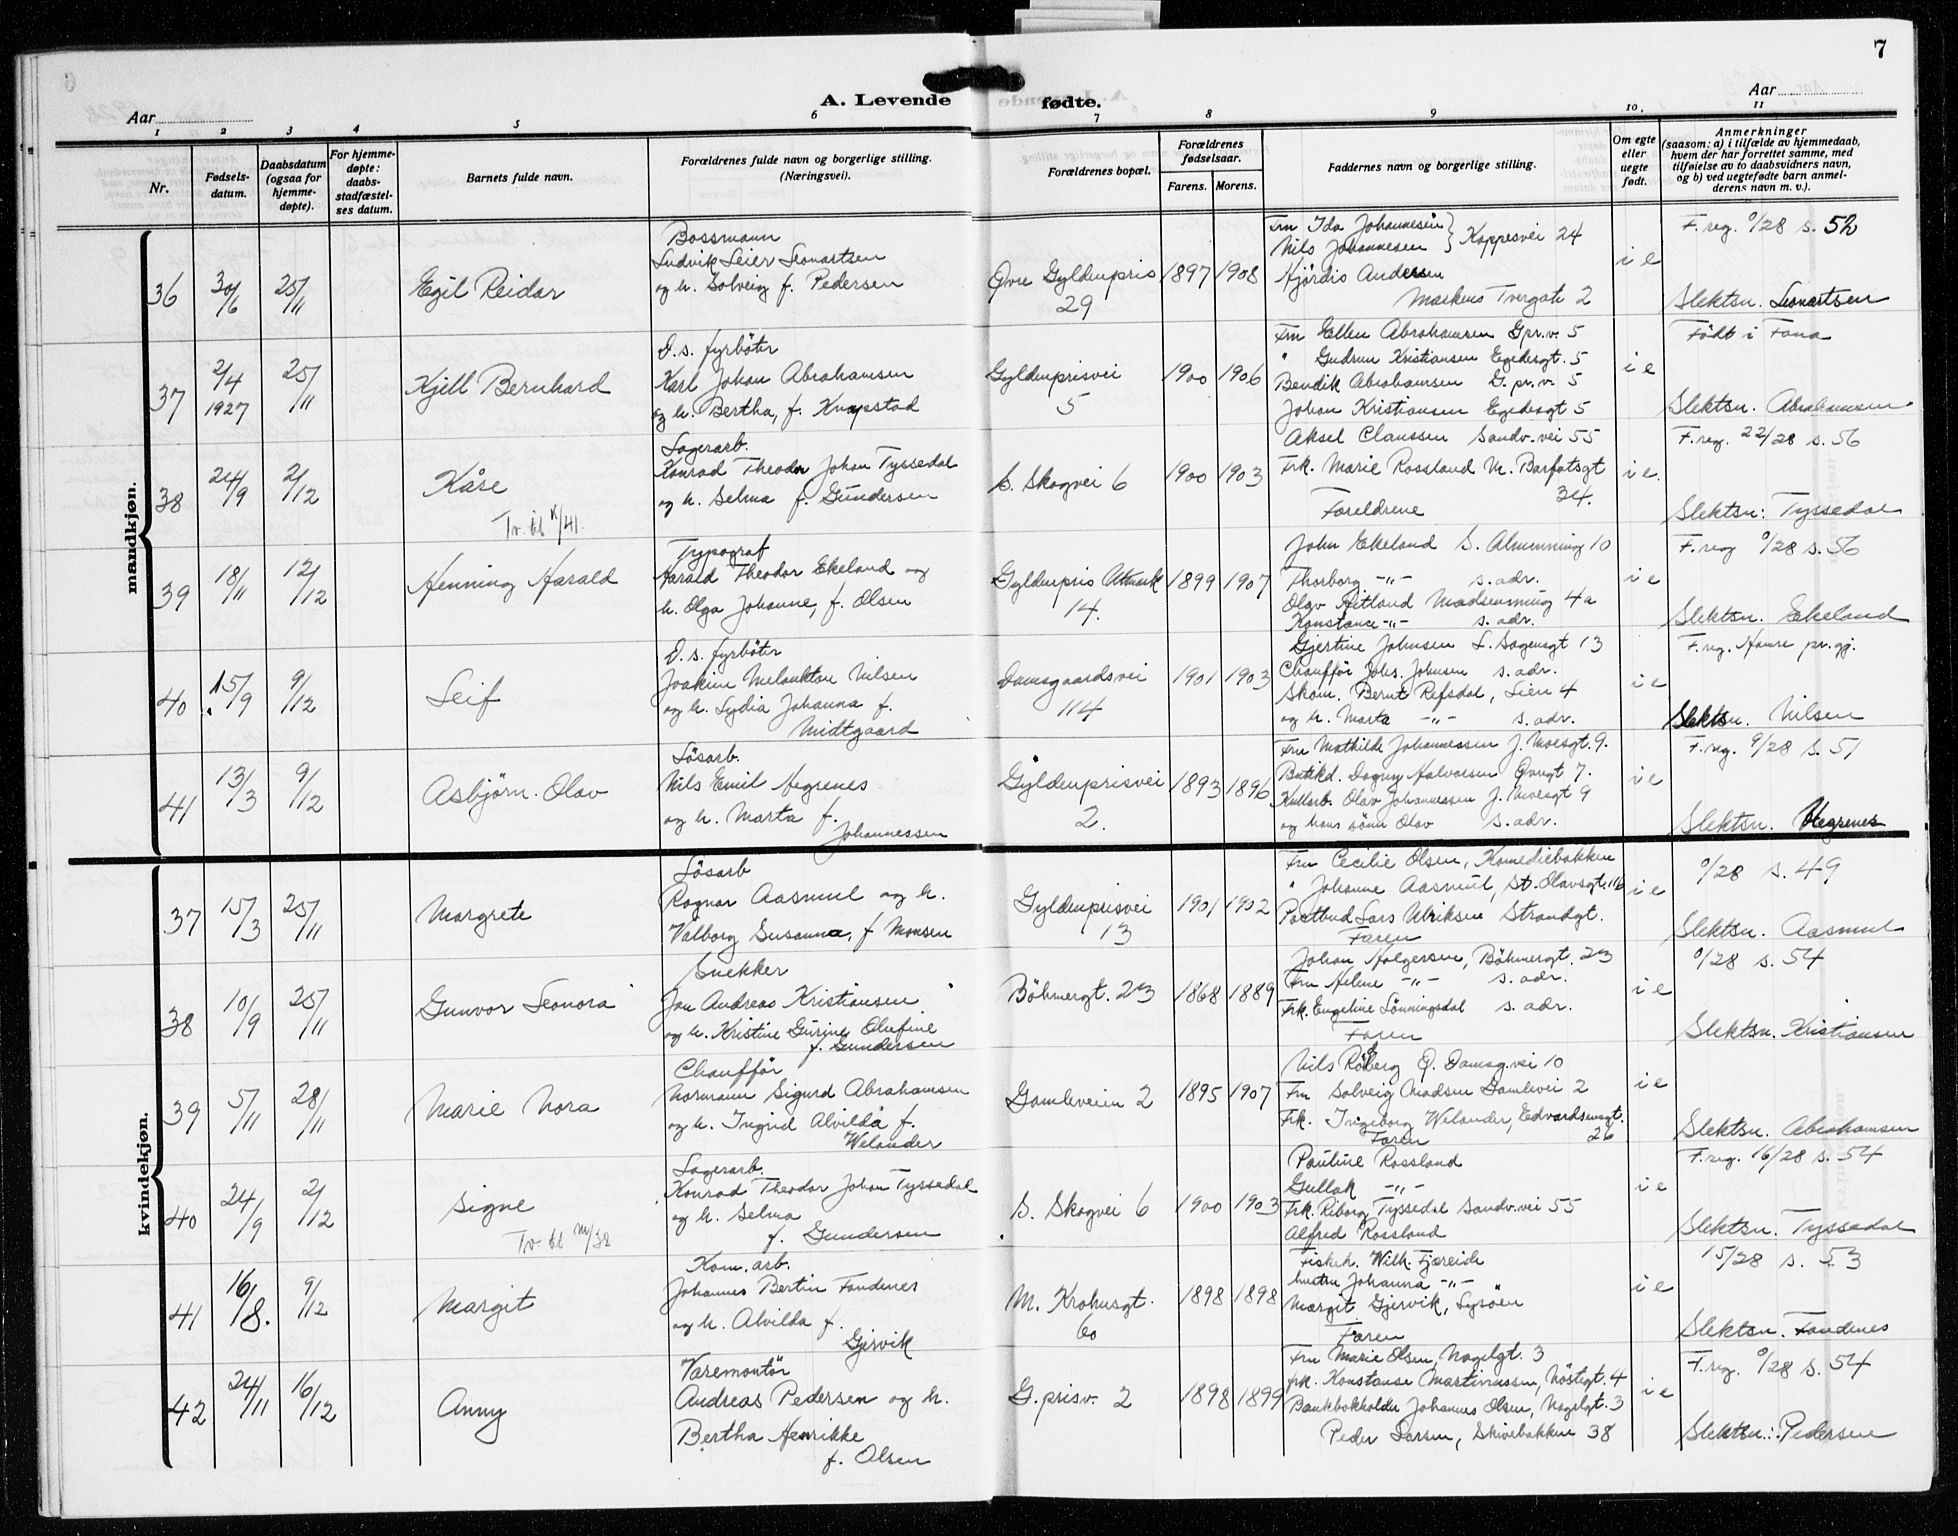 7
A. Levende fødte.
Aar
Aar
1 2 3 4 5 6 7 8 9 10. 11
Nr.
Fødsels-
datum.
Daabsdatum
(ogsaa for
hjemme-
døpte).
For hjemme-
døpte:
daabs-
stadfæstel-
ses datum.
Barnets fulde navn.
Forældrenes fulde navn og borgerlige stilling.
(Næringsvei).
Forældrenes bopæl.
Forældrenes
fødselsaar.
Farens. Morens.
Faddernes navn og borgerlige stilling.
Om egte
eller
uegte
født.
Anmerkninger
(saasom: a) i tilfælde av hjemmedaab,
hvem der har forrettet samme, med
tilføielse av to daabsvidners navn,
og b) ved uegtefødte barn anmel-
derens navn m. v.).
mandkjøn.
36 30/6 25/11 Egil Reidar
Bossmann
Ludvik Leier Leonartsen
og h. Solveig f. Pedersen
Øvre Gyldenpris
29
1897 1908
Fru Ida Johannesen
Nils Johannesen } Kappesvei 24
Hjördis Andersen
Markens Tvergate 2
i e
F. reg. 9/28 s. 52
Slektsn. Leonartsen
37 2/4 1927 25/11 Kjell Bernhard
D.s. fyrböter
Karl Johan Abrahamsen
og h. Bertha, f. Knapstad
Gyldenprisvei
5
1900 1906
Fru Ellen Abrahamsen G.pr.v. 5
" Gudrun Kristiansen Egedesgt. 5
Bendik Abrahamsen G.pr.v. 5
Johan Kristiansen Egedesgt 5
i e
Födt i Fana
Slektsn. Abrahamsen
38 24/9 2/12 Kåre
Tv. til K/41.
Lagerarb.
Konrad Theodor Johan Tyssedal
og h. Selma f. Gundersen
S. Skogvei 6
1900 1903
Aksel Claussen Sandv.vei 55
Frk. Marie Rossland M. Barfotsgt
34.
Foreldrene
i e.
F. reg. 22/28 s. 56
Slektsn: Tyssedal
39 18/11 12/12 Henning Harald
Typograf
Harald Theodor Ekeland og
h. Olga Johanne, f. Olsen
Gyldenpris Utmark
14.
1899 1907
John Ekeland S. Almenning 10
Thorborg -"- s. adr.
Olav Hetland Madsensmug 4a
Konstance -"- s. adr.
i e
F. reg 9/28 s. 56
Slektsn. Ekeland
40 15/9 9/12 Leif
D.s. fyrböter
Joakim Melankton Nilsen
og h. Lydia Johanna f.
Midtgaard
Damsgaardsvei
114
1901 1903
Gjertine Johnsen L. Sagensgt 13
Chaufför Johs. Johnsen s. adr.
Skom. Bernt Refsdal, Lien 4
og h. Marta -"- s. adr.
i e
F. reg. Hamre pr.gj.
Slektsn. Nilsen
41 13/3 9/12 Asbjørn Olav
Lösarb.
Nils Emil Hegrenes
og h. Marta f.
Johannessen
Gyldenprisvei
2.
1893 1896
Fru Mathilde Johannessen J. Moesgt. 9.
Butikd. Dagny Halvorsen Øvregt 7.
Kullarb. Olav Johannessen J. Moesgt 9
og hans sönn Olav s. adr.
i e
F. reg. 9/28 s. 51
Slektsn. Hegrenes
kvindekjøn.
37 15/3 25/11 Margrete
Lösarb
Ragnar Aasmul og h.
Valborg Susanna, f Monsen
Gyldenprisvei
13
1901 1902
Fru Cecilie Olsen, Komediebakken
" Johanne Aasmul, St. Olavsgt. 11b
Postbud Lars Ulriksen Strandgt.
Faren
i e
9/28 s. 49
Slektsn. Aasmul
38 10/9 25/11 Gunvor Leonora
Snekker
Jan Andreas Kristiansen
og h. Kristine Gurine Olufine
f. Gundersen
Böhmergt. 23
1868 1889
Johan Holgersen, Böhmergt. 23
Fru Helene -"- s. adr.
Frk. Engeline Lönningsdal s. adr.
Faren
i e
9/28 s. 54
Slektsn. Kristiansen
39 5/11 28/11 Marie Nora
Chaufför
Normann Sigurd Abrahamsen
og h. Ingrid Alvilda f.
Welander
Gamleveien 2
1895 1907
Nils Röberg Ø. Damsg.vei 10
Fru Solveig Madsen Gamlevei 2
Frk. Ingeborg Welander, Edvardsensgt.
26
Faren
i e
Slektsn. Abrahamsen
40 24/9 2/12 Signe
Tv. til M/38
Lagerarb.
Konrad Theodor Johan Tyssedal
og h. Selma
f. Gundersen
S. Skogvei 6
1900 1903
Pauline Rossland
Gullak -"-
Frk. Riborg Tyssedal Sandv.vei 55
Alfred Rossland
i e
F. reg. 16/28 s. 54
Slektsn. Tyssedal
41 16/8. 9/12 Margit
Kom. arb.
Johannes Bertin Fondenes
og h. Alvilda f.
Gjervik
M. Krohnsgt.
60
1898 1898
Fiskeh. Wilh. Fjæreide
hustru Johanna -"-
Margit Gjervik, Lysöen
Faren
i e
15/28 s. 53
Slektsn. Fondenes
42 24/11 16/12 Anny
Varemontör
Andreas Pedersen og h.
Bertha Henrikke
f. Olsen
G.prisv. 2
1898 1899
Fru Marie Olsen, Nagelgt. 3
Frk. Konstanse Martinussen, Nöstegt. 4
Bankbokholder Johannes Olsen, Nagelgt. 3
Peder Larsen, Skivebakken 38
i e
F. reg. 9/28 s. 54
Slektsn: Pedersen